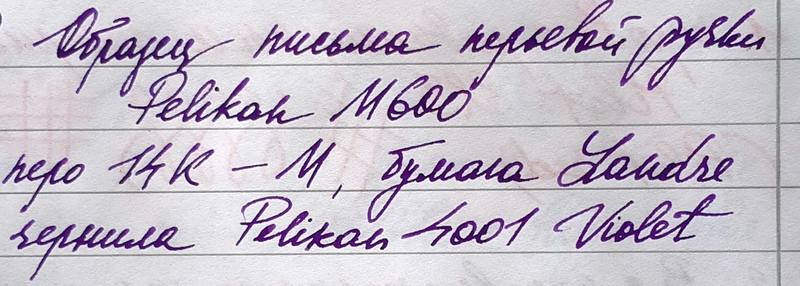 Образец письма перьевой ручки
Pelikan M600
перо 14K - M, бумага Landre
чернила Pelikan 4001 Violet